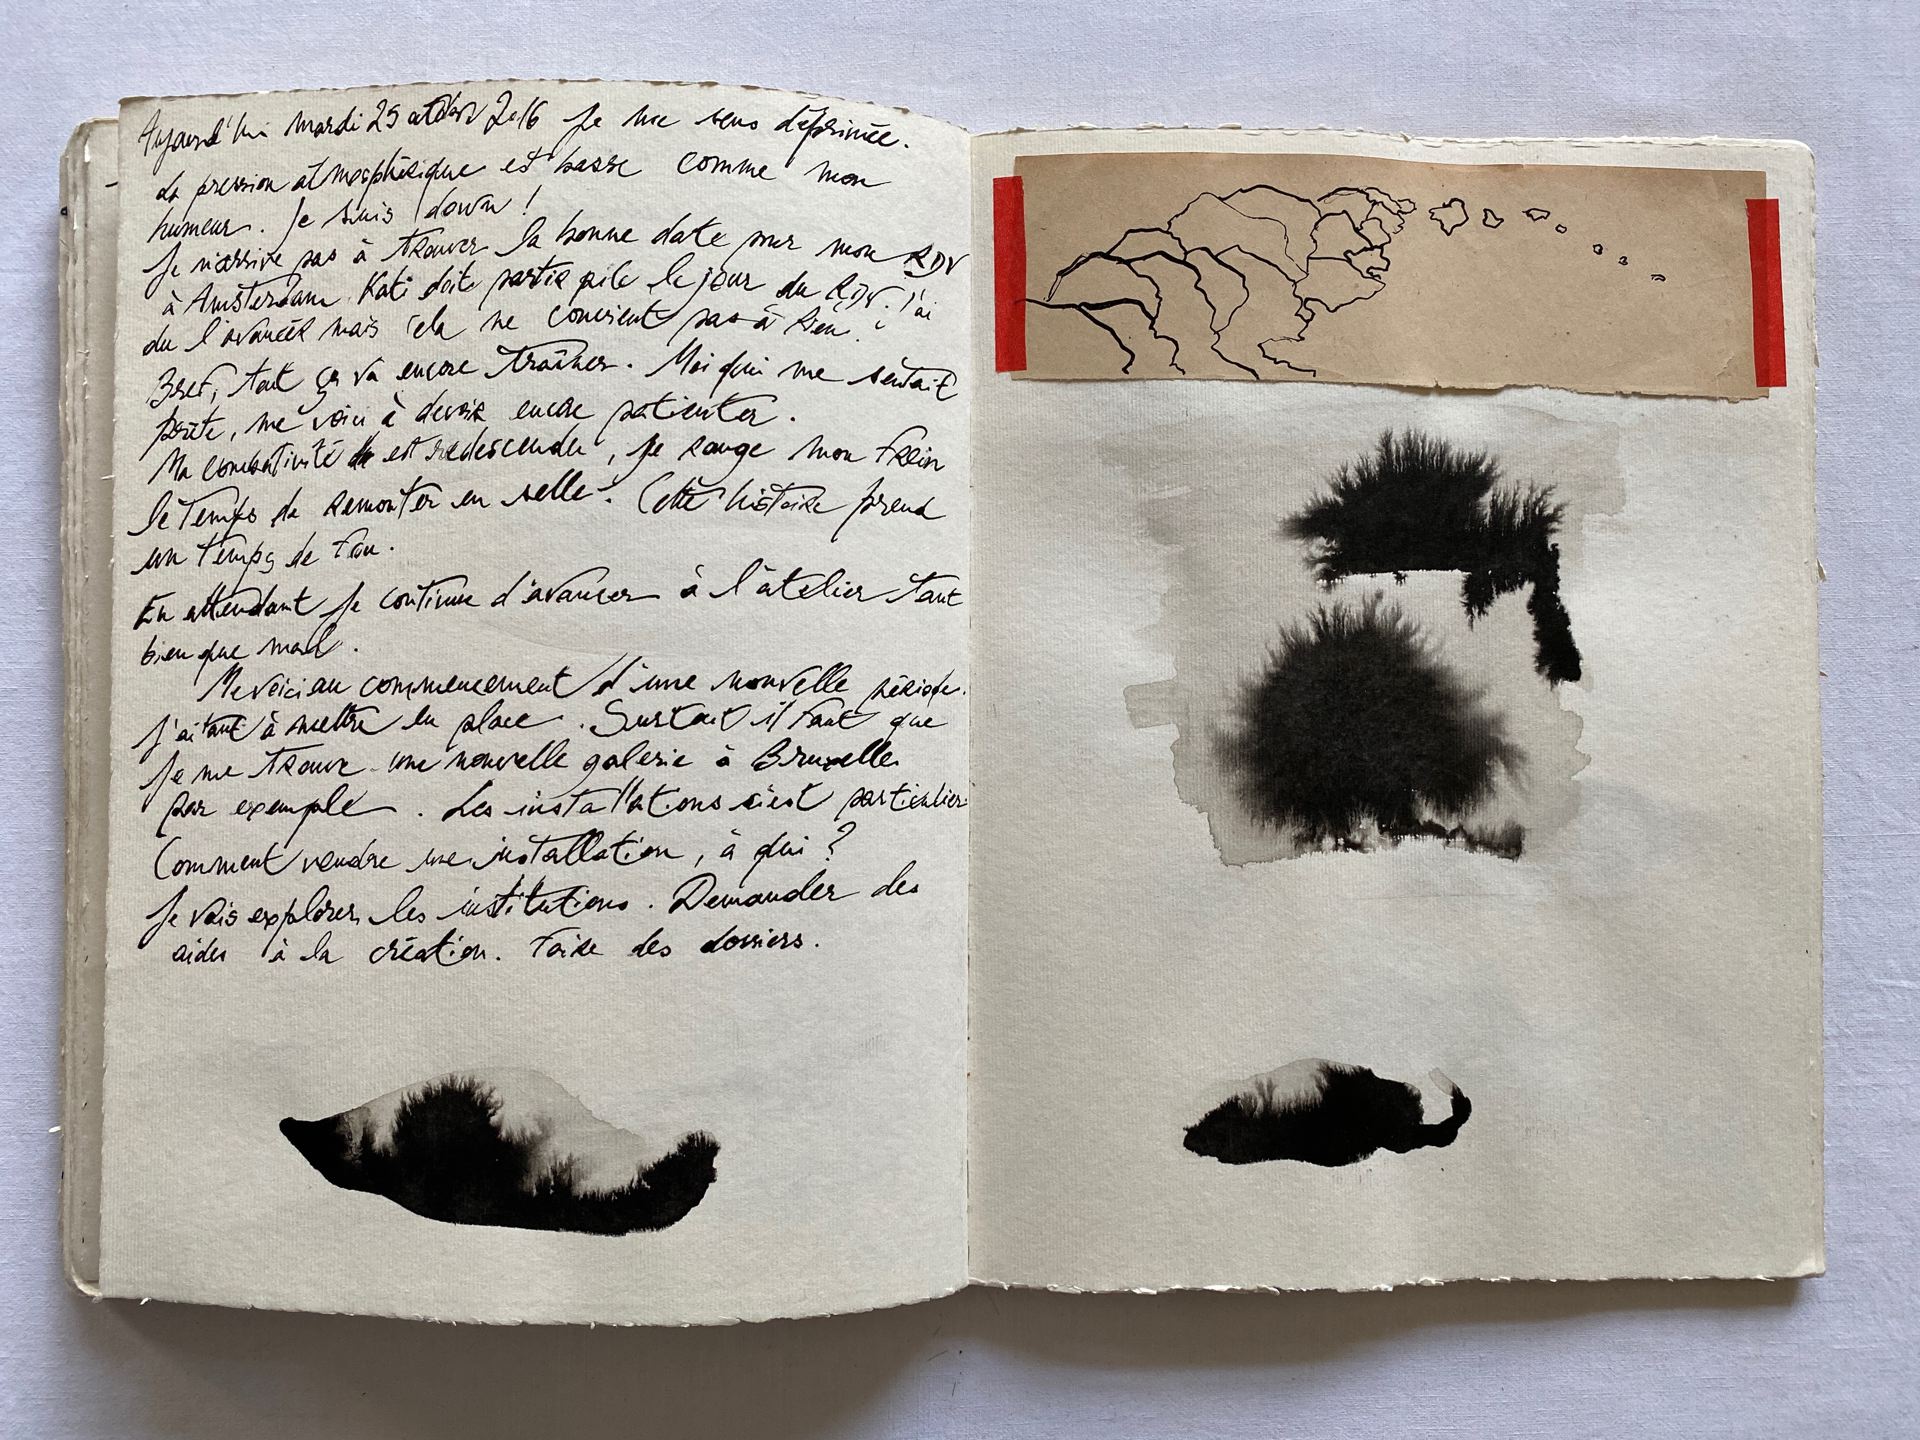 Aujourd'hui mardi 25 octobre 2016 je me sens déprimée.
La pression atmosphérique est basse comme mon
humeur. Je suis down !
Je n'arrive pas à trouver la bonne date pour mon RDV
à Amsterdam. Kati doit partir pile le jour du RDV. J'ai
du l'avancer mais cela ne convient pas à
Bref, tout ça va encore traîner. Moi qui me sentait
prête, me voici à devoir encore patienter.
Ma combativité est redescendu, je range mon frein
le temps de remonter en selle. Cette histoire prend
un temps de fou.
En attendant je continue d'avancer à l'atelier tant
bien que mal.
Me voici au commencement d'une nouvelle période.
J'ai tant à mettre en place. Surtout il faut que
je me trouve une nouvelle galerie à Bruxelles
par exemple. Les installations c'est particulier.
Comment vendre une installation, à qui ?
Je vais explorer les institutions. Demander des
aides à la création. Faire des dossiers.